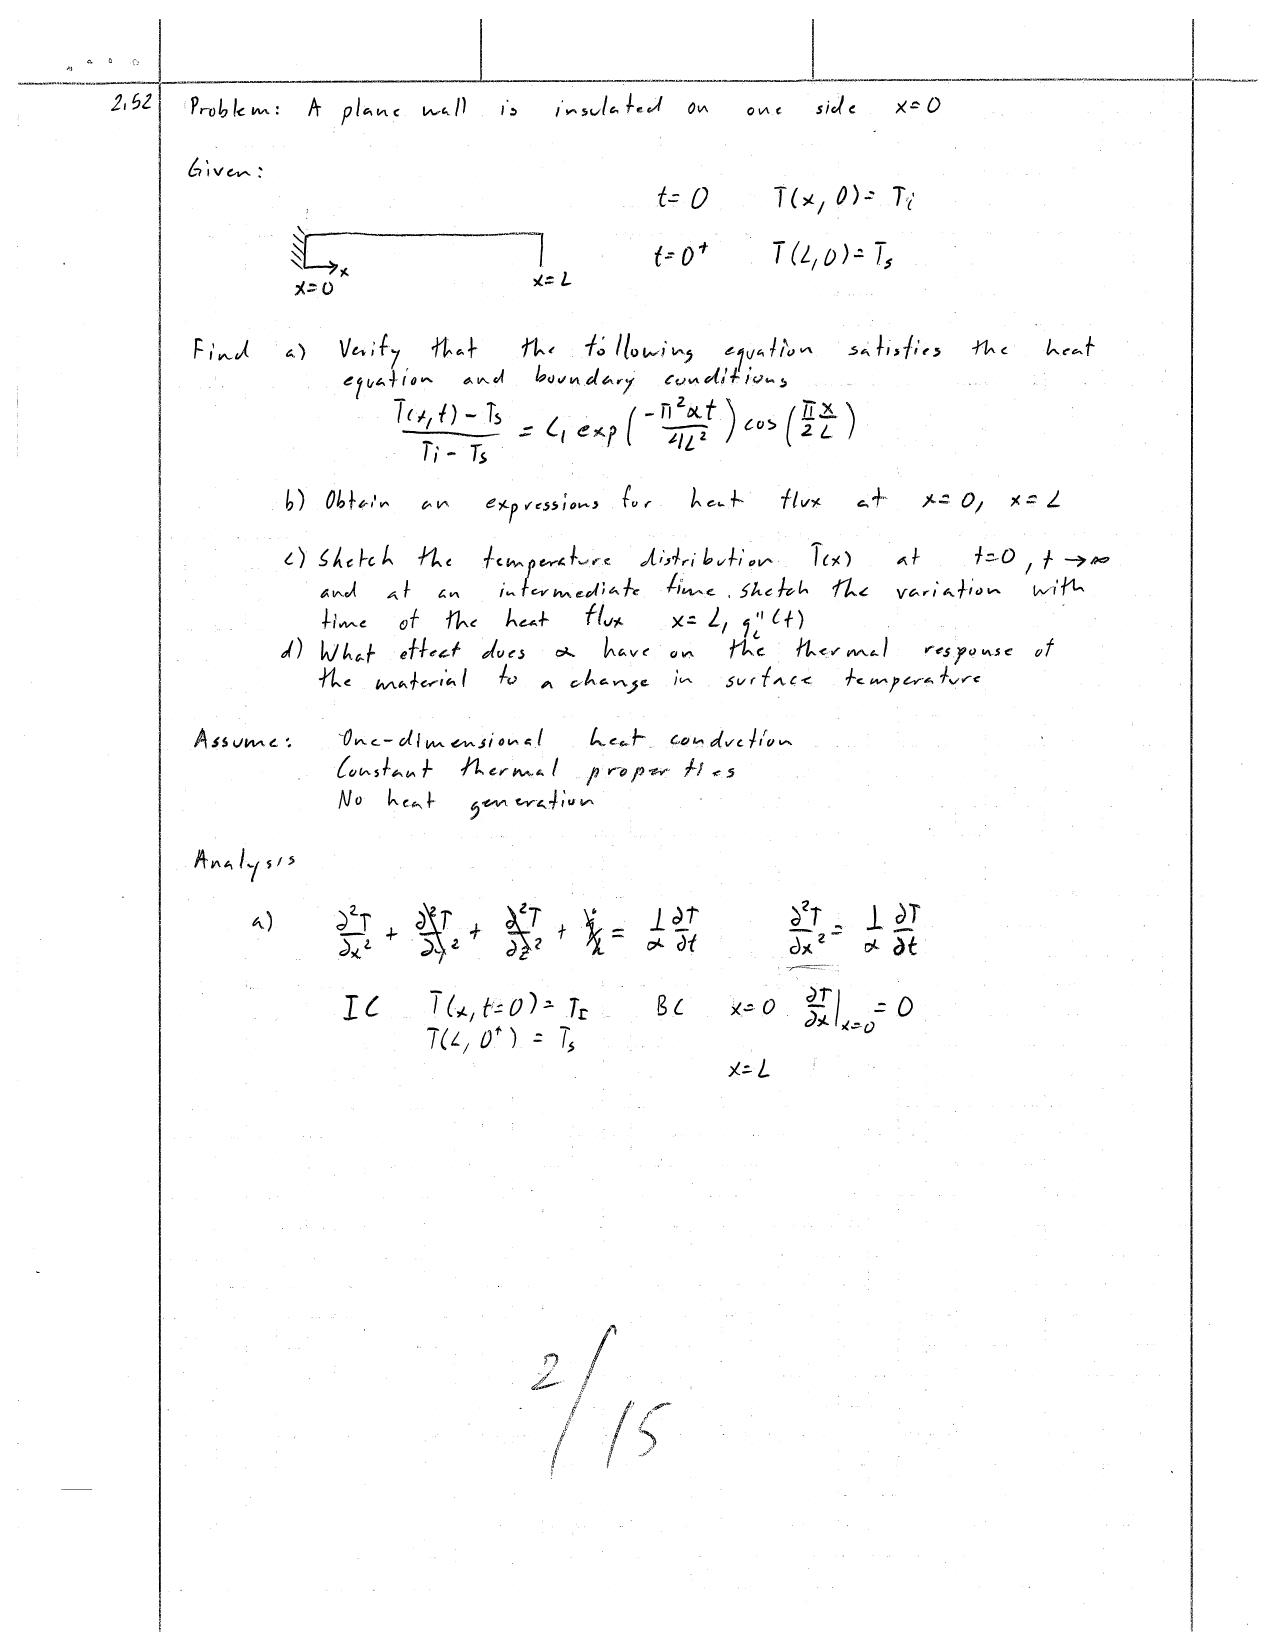 2.52 Problem: A plane wall is insulated on one side x=0
Given:
t=0 T(x, 0)= Ti
t=0⁺ T(L,0)= Ts
x
x=0
x=L
Find a) Verify that the following equation satisfies the heat
equation and boundary conditions
(T(x,t) - Ts)/(Ti - Ts) = C₁ exp(-π²αt/4L²) cos(π/2 x/L)
b) Obtain an expressions for heat flux at x=0, x=L
c) Sketch the temperature distribution T(x) at t=0, t→∞
and at an intermediate time. Sketch the variation with
time of the heat flux x=L, q"L(t)
d) What effect does α have on the thermal response of
the material to a change in surface temperature
Assume: One-dimensional heat conduction
Constant thermal properties
No heat generation
Analysis
a) ∂²T/∂x² + ∂²T/∂y² + ∂²T/∂z² + = 1/α ∂T/∂t ∂²T/∂x² = 1/α ∂T/∂t
IC T(x, t=0)= TI BC x=0 ∂T/∂x|x=0 = 0
T(L, 0⁺) = Ts
x=L
2/15